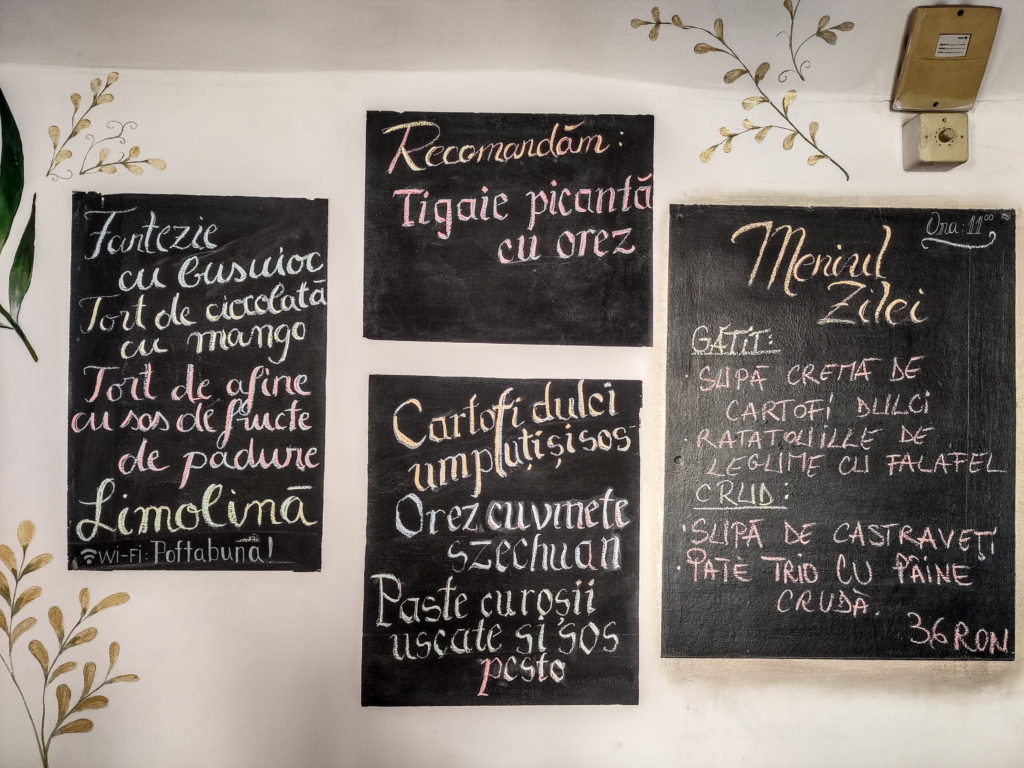 Fantezie
cu busuioc
Tort de ciocolată
cu mango
Tort de afine
cu sos de fructe
de pădure
Limolină
Wi-Fi: Poftabuna!
Recomandăm:
Tigaie picantă
cu orez
Cartofi dulci
umpluți și sos
Orez cu vinete
szechuan
Paste cu roșii
uscate și sos
pesto
Ora: 11⁰⁰
Meniul
Zilei
GĂTIT:
· SUPĂ CREMĂ DE
CARTOFI DULCI
· RATATOUILLE DE
LEGUME CU FALAFEL
CRUD:
· SUPĂ DE CASTRAVEȚI
· PATE TRIO CU PÂINE
CRUDĂ.
36 RON